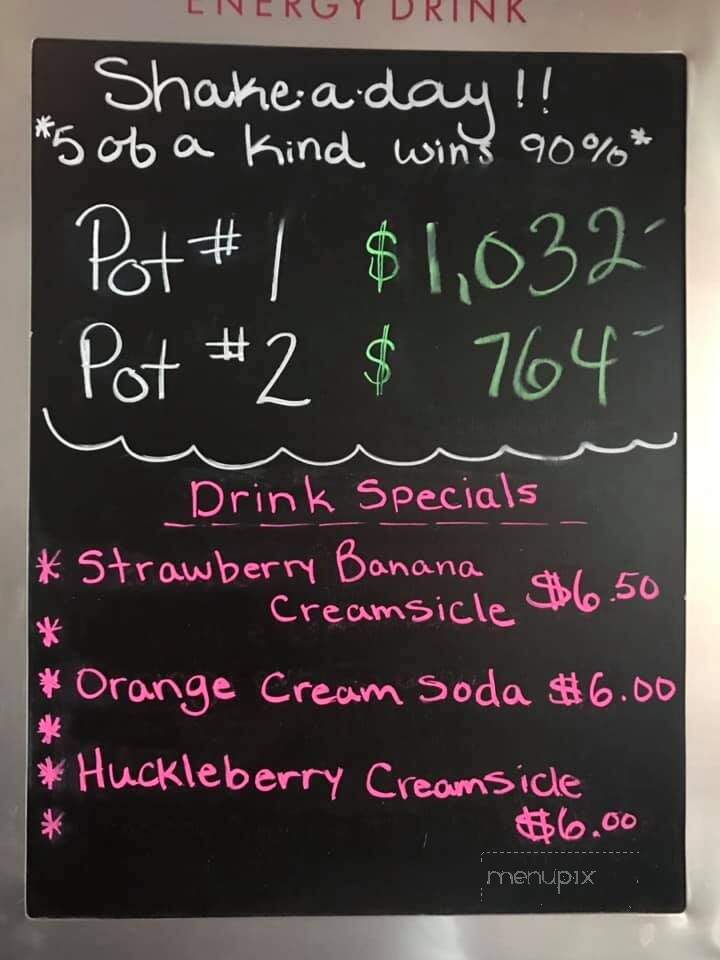 ENERGY DRINK
Shake·a·day!!
*5 of a kind wins 90%*
Pot #1 $1,032-
Pot #2 $ 764-
Drink Specials
* Strawberry Banana
Creamsicle $6.50
*
* Orange Cream Soda $6.00
*
* Huckleberry Creamsicle
* $6.00
menupix